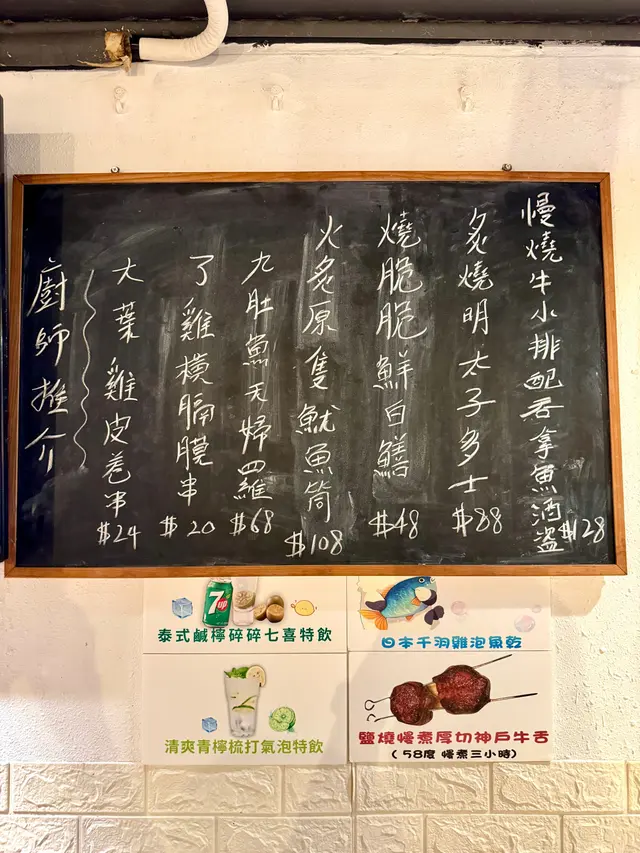 廚師推介
大葉雞皮卷串 $24
了雞橫膈膜串 $20
九肚魚天婦羅 $68
火炙原隻魷魚筒 $108
燒脆脆鮮白鱔 $48
炙燒明太子多士 $88
慢燒牛小排配吞拿魚酒盜 $128
7up
泰式鹹檸碎碎七喜特飲
日本千羽雞泡魚乾
清爽青檸梳打氣泡特飲
鹽燒慢煮厚切神戶牛舌
(58度 慢煮三小時)